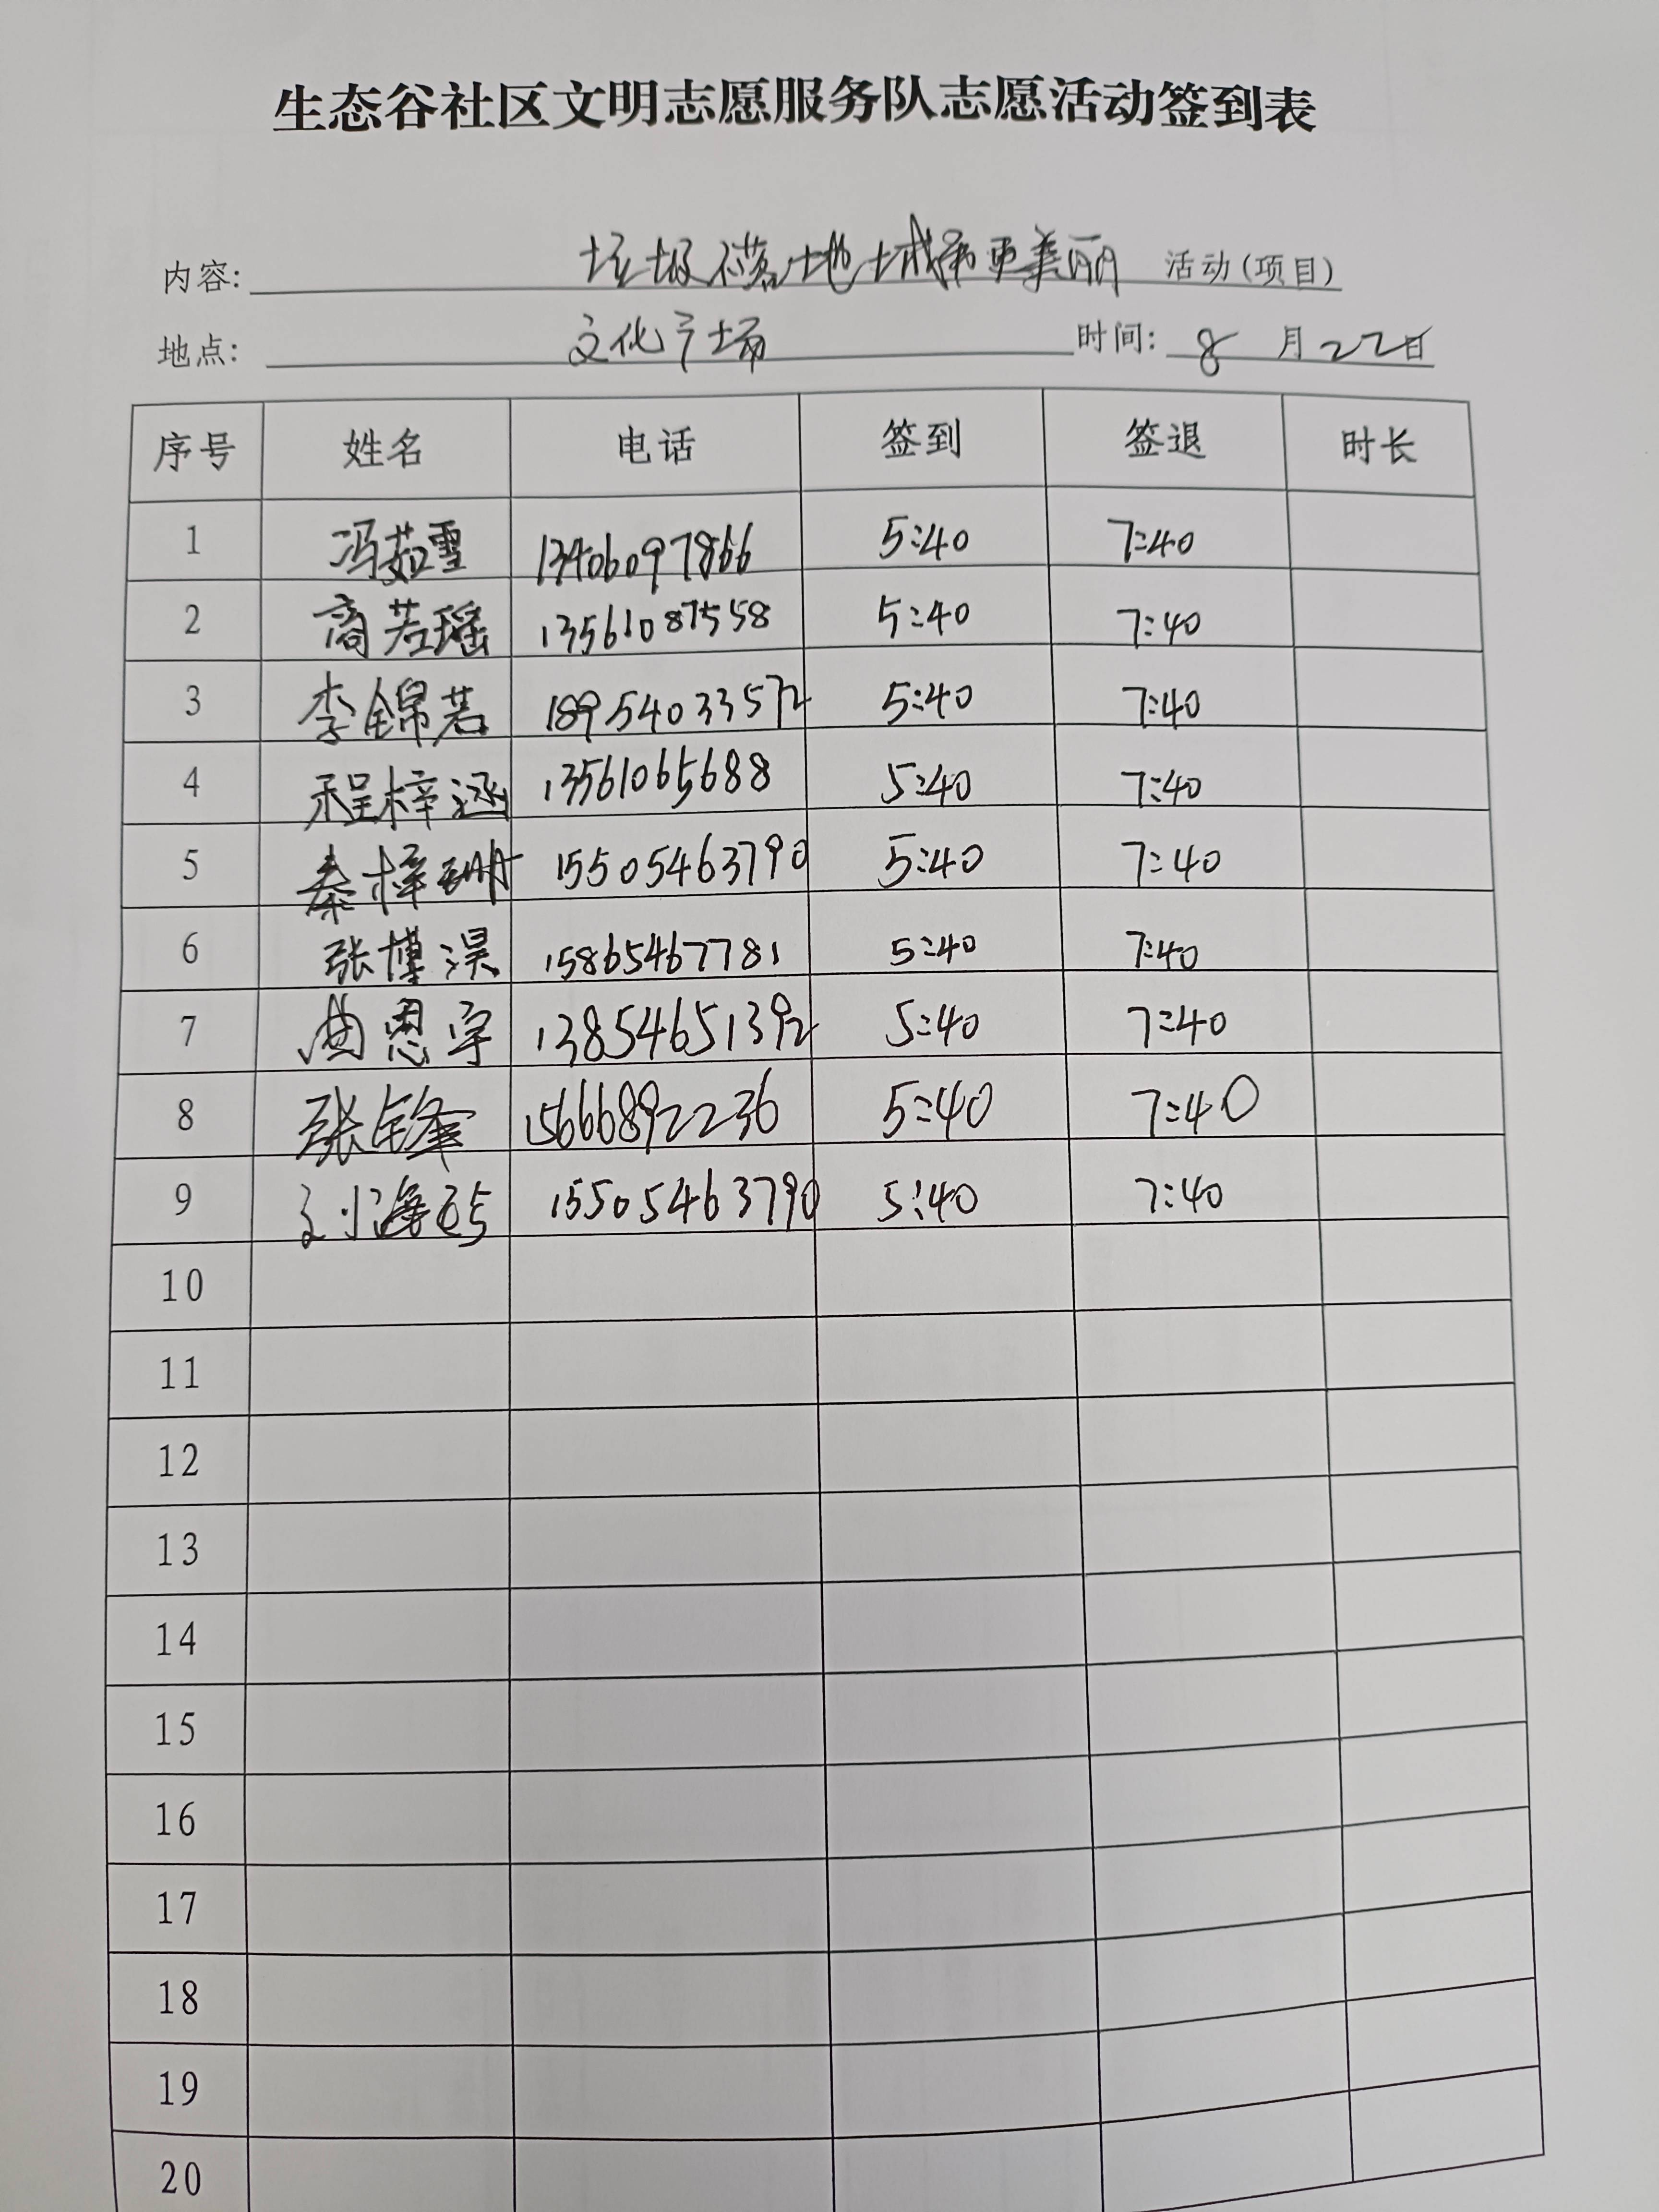 生态谷社区文明志愿服务队志愿活动签到表
内容: 垃圾不落地 城市更美丽 活动(项目)
地点: 文化广场 时间: 8 月 22日
序号 姓名 电话 签到 签退 时长
1 冯茹雪 13406097866 5:40 7:40
2 商若瑶 13561087558 5:40 7:40
3 李锦若 18954033572 5:40 7:40
4 程梓涵 13561065688 5:40 7:40
5 秦梓珊 15505463790 5:40 7:40
6 张博淏 15865467781 5:40 7:40
7 曲恩宇 13854651392 5:40 7:40
8 张锋 15666892236 5:40 7:40
9 刘海巧 15505463790 5:40 7:40
10
11
12
13
14
15
16
17
18
19
20